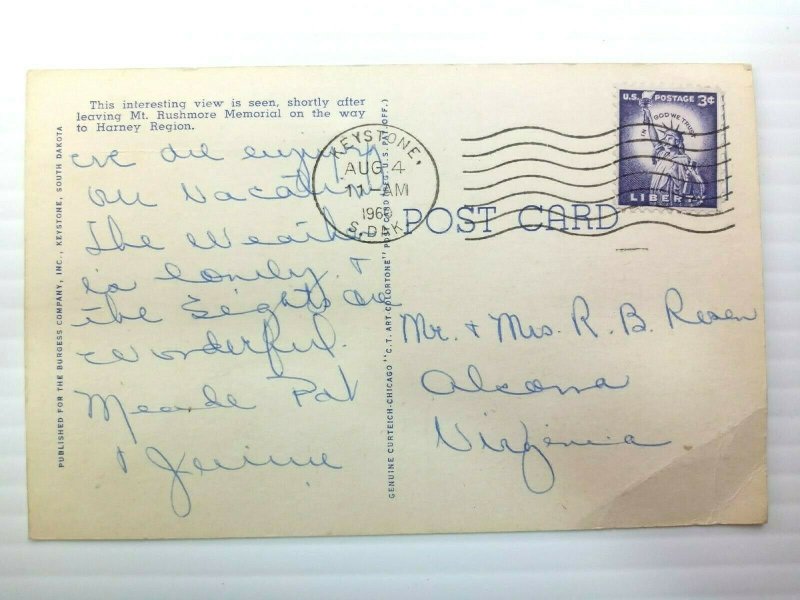 This interesting view is seen, shortly after
leaving Mt. Rushmore Memorial on the way
to Harney Region.
we are enjoying
our Vacation
The Weather
is lovely +
the Sights are
wonderful.
Meade Pat
+
PUBLISHED FOR THE BURGESS COMPANY, INC., KEYSTONE, SOUTH DAKOTA
GENUINE CURTEICH-CHICAGO "C.T. ART-COLORTONE" POST CARD (REG. U.S. PAT. OFF.)
KEYSTONE,
AUG 4
11-AM
S.DAK.
U.S. POSTAGE 3¢
IN GOD WE TRUST
LIBERTY
POST CARD
Mr. + Mrs. R. B.
Virginia